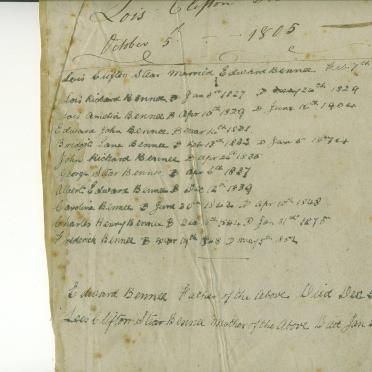 Lois Clifton
October 5th 1805
Lois Clifton Star Married Edward Bennee Feb 7th
Lois Richard Bennee B Jan 5th 1827 D May 26th 1829
Lois Amelia Bennee B Apr 10th 1829 D June 16th 1904
Edward John Bennee B Mar
Bridget Jane Bennee B Feb 13th 1833 D Jan 5th
John Richard Bennee B Apr 26th 1835
George Star Bennee B Apr 6th 1837
Albert Edward Bennee B Dec 12th 1839
Caroline Bennee B June 20th 1842 D Apr 10th 1843
Charles Henry Bennee B Dec 1844 D Jan 31st 1875
Frederick Bennee B Mar 19th 1848 D May 5th 1852
Edward Bennee Father of the Above Died Dec
Lois Clifton Star Bennee Mother of the Above Jan